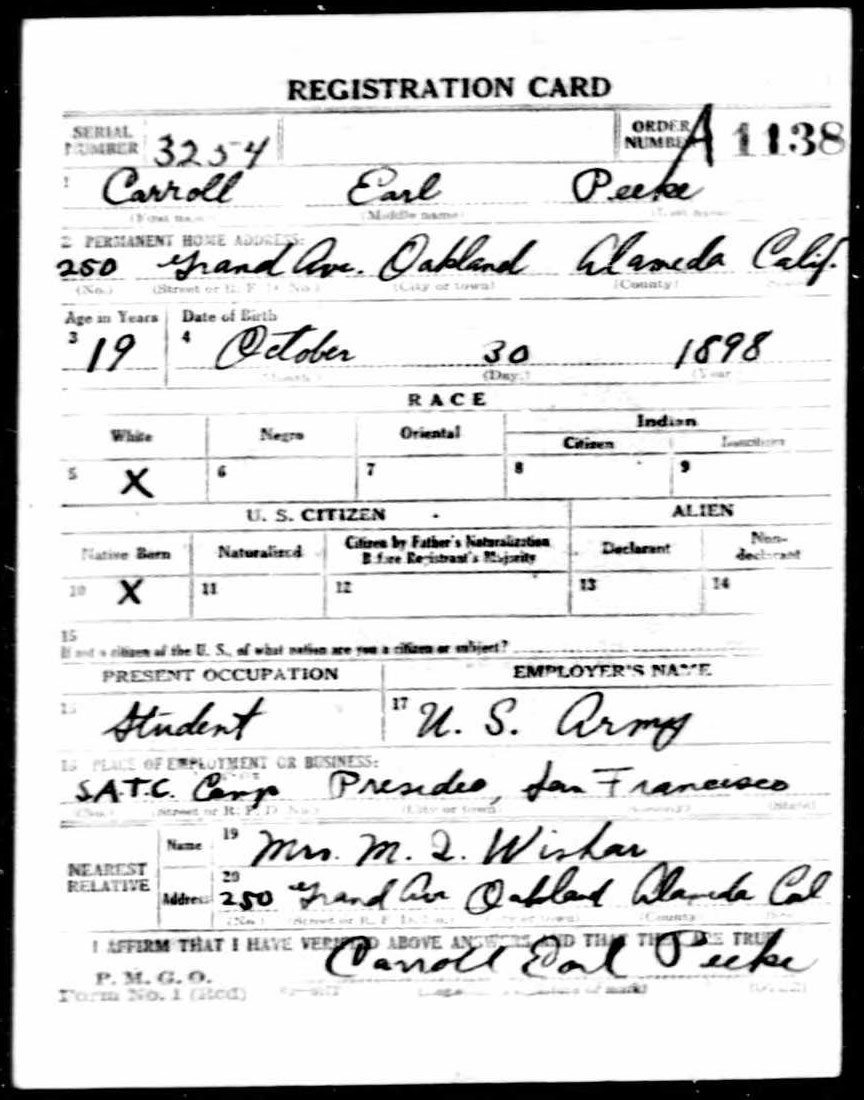 REGISTRATION CARD
SERIAL NUMBER 3254 ORDER NUMBER A 1138
1 Carroll Earl Peeke
(First name) (Middle name) (Last name)
2 PERMANENT HOME ADDRESS:
250 Grand Ave. Oakland Alameda Calif.
(No.) (Street or R. F. D. No.) (City or town) (County)
Age in Years Date of Birth
3 19 4 October 30 1898
(Month) (Day) (Year)
RACE
White Negro Oriental Indian
Citizen
5 X 6 7 8 9
U. S. CITIZEN ALIEN
Native Born Naturalized Citizen by Father's Naturalization Before Registrant's Majority Declarant Non-declarant
10 X 11 12 13 14
15
If not a citizen of the U. S., of what nation are you a citizen or subject?
PRESENT OCCUPATION EMPLOYER'S NAME
16 Student 17 U. S. Army
18 PLACE OF EMPLOYMENT OR BUSINESS:
S.A.T.C. Camp Presideo, San Francisco
(No.) (Street or R. F. D. No.) (City or town) (County) (State)
NEAREST RELATIVE
Name 19 Mrs. M. I. Wishar
Address 20 250 Grand Av Oakland Alameda Cal
(No.) (Street or R. F. D. No.) (City or town) (County)
I AFFIRM THAT I HAVE VERIFIED ABOVE ANSWERS AND THAT THEY ARE TRUE
P. M. G. O.
Form No. 1 (Red) Carroll Earl Peeke
(Registrant's signature or mark) (OVER)